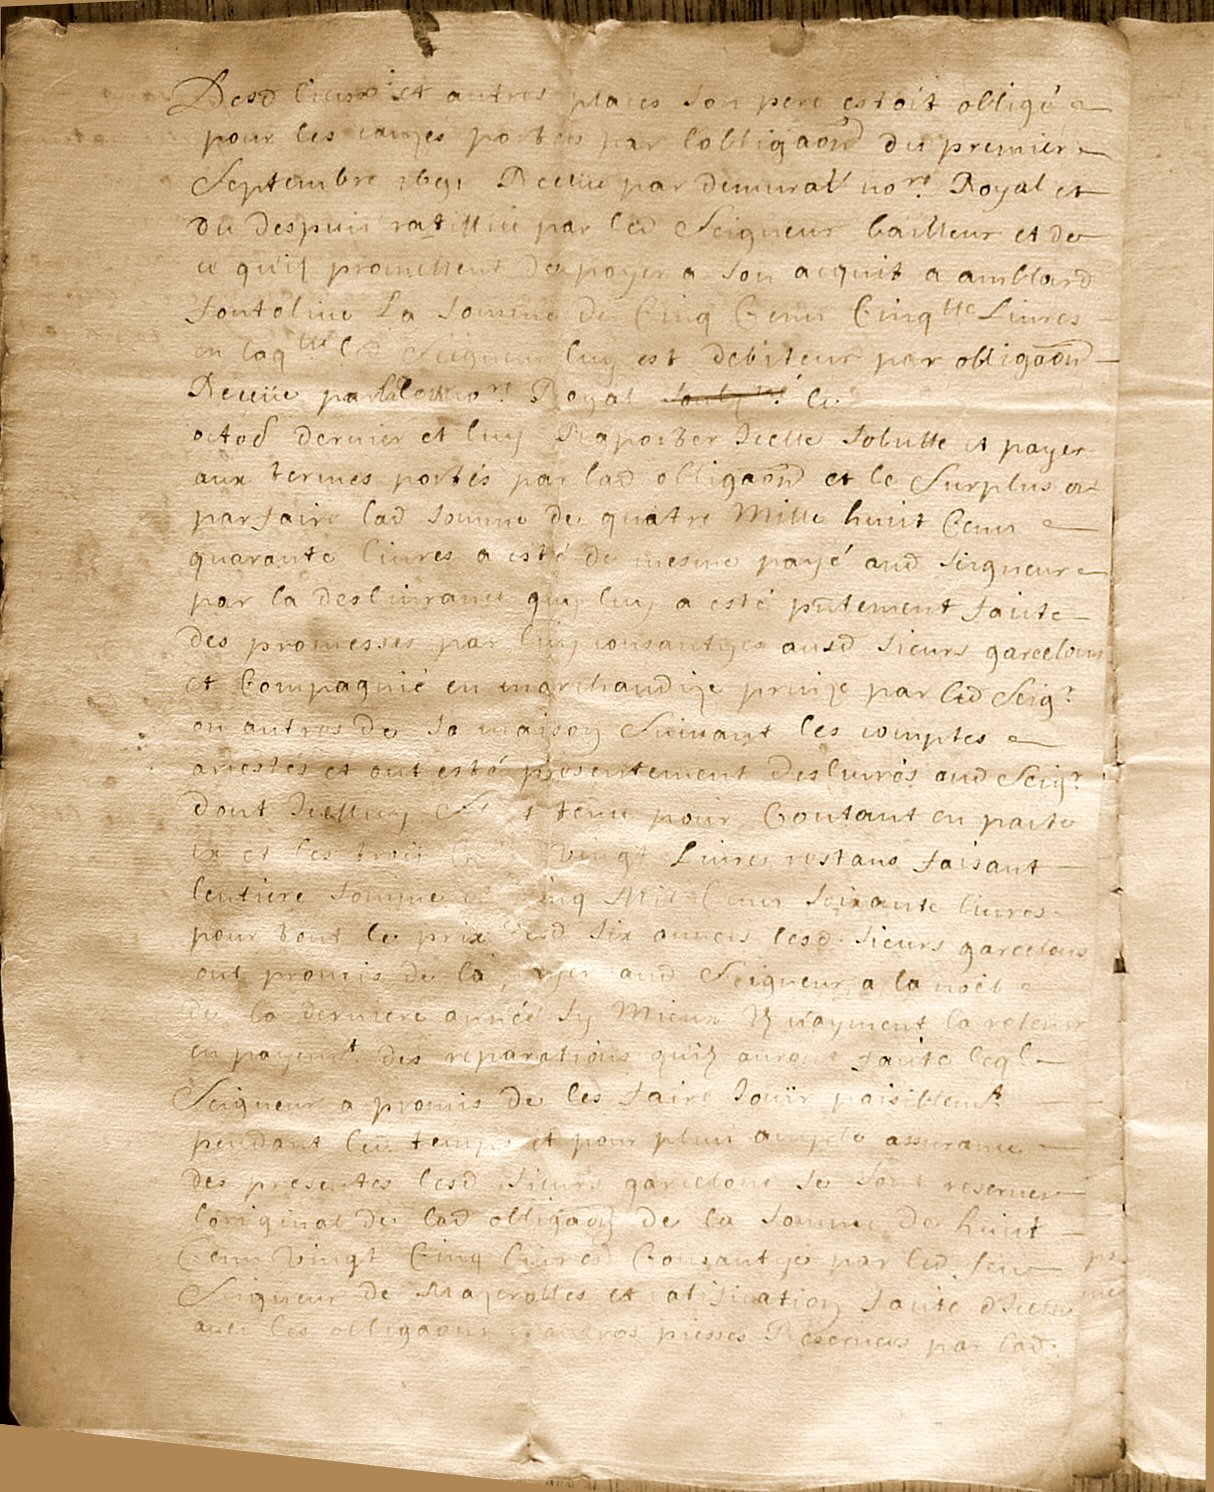 Desd lieux et autres places son pere estoit obligé
pour les causes portées par lobligaon du premier
Septembre 1691 Receüe par demurat nore Royal et
du despuis ratiffiée par led Seigneur bailleur et de
ce quilz promettent de payer a son acquit a amblard
fontelive La somme de Cinq Cens Cinqtte Livres
en laqlle led Seigneur luy est debiteur par obligaon
Receüe par nore Royal le
octob dernier et luy Raporter Icelle solutte et payer
aux termes portés par lad obligaon et le Surplus a
parfaire lad somme de quatre Mille huit Cens
quarante livres a esté de mesme payé aud Seigneur
par la deslivrance quy luy a esté pntement faite
des promesses par luy consanties ausd sieurs garcelons
et Compagnie en marchandize prinze par led Seigr
ou autres de sa maison Suivant les comptes
arrestés et ont esté presentement deslivrés aud Seigr
dont Icelluy tenu pour Contant en partie
et les trois vingt Livres restans faisant
lentiere somme de Cinq Mil Cens soixante livres
pour tout le prix desd six années lesd sieurs garcelons
ont promis de la payer aud Seigneur a la noël
de la derniere année sy Mieux Ilz n'ayment la retenir
en payemt des reparations quilz auront faite leql
Seigneur a promis de les faire Jouïr paisiblemt
pendant led temps et pour plus ample assurance
des presentes lesd sieurs garcelons se sont reservés
loriginal de lad obligaon de la somme de huit
Cens vingt Cinq livres Consantye par led feu
Seigneur de Mazerolles et ratification faite d'Icelle
avec les obligaons et autres piesses Reservées par lad